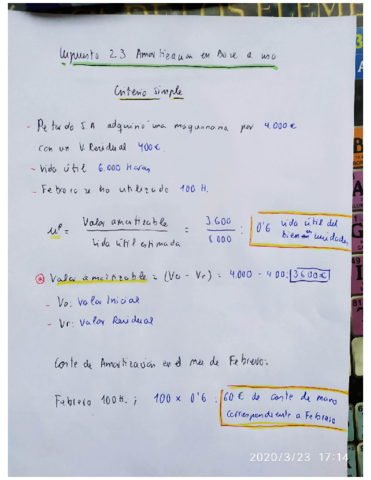 Supuesto 2.3 Amortización en base a uso
Criterio Simple
- Petardo S.A adquirió una maquinaria por 4.000€
con un V. Residual 400€.
- Vida útil 6.000 Horas
- Febrero se ha utilizado 100 H.
uº = Valor amortizable / Vida útil estimada = 3.600 / 6.000 : 0'6 vida útil del
bien en unidades
* Valor amortizable = (Vo - Vr) = 4.000 - 400: 3600€
- Vo: Valor Inicial
- Vr: Valor Residual
Coste de Amortización en el mes de Febrero:
Febrero 100H. ; 100 x 0'6 : 60 € de coste de
correspondiente a Febrero
2020/3/23 17:14